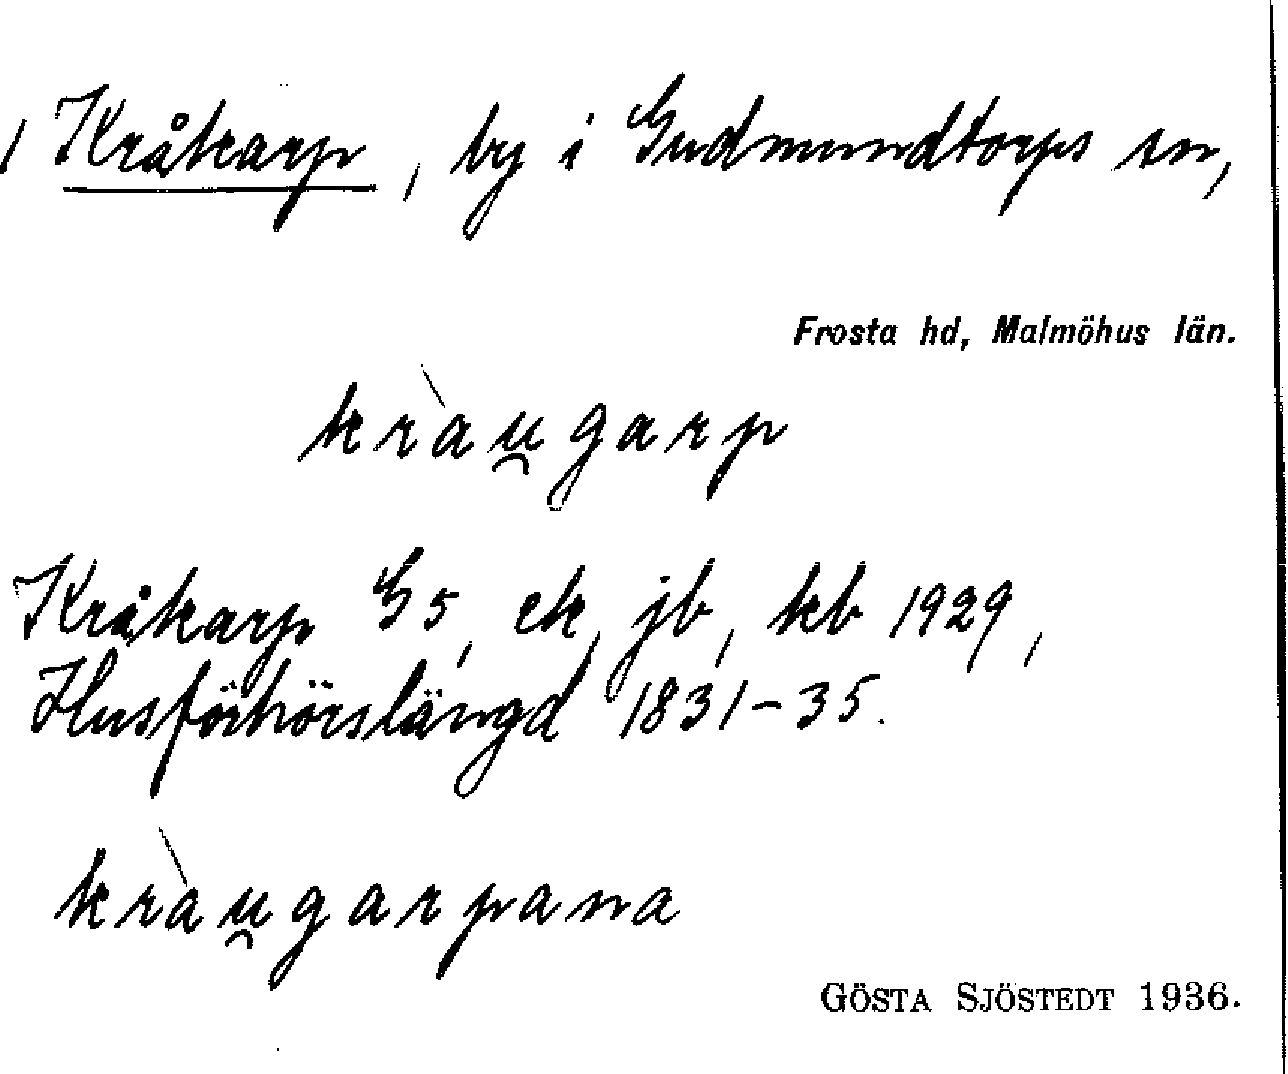 / Kråkarp, by i Gudmundtorps sn,
Frosta hd, Malmöhus län.
kràu̯garp
Kråkarp G5, ek, jb, kb 1929,
Husförhörslängd 1831-35.
kràu̯garpana
GÖSTA SJÖSTEDT 1936.